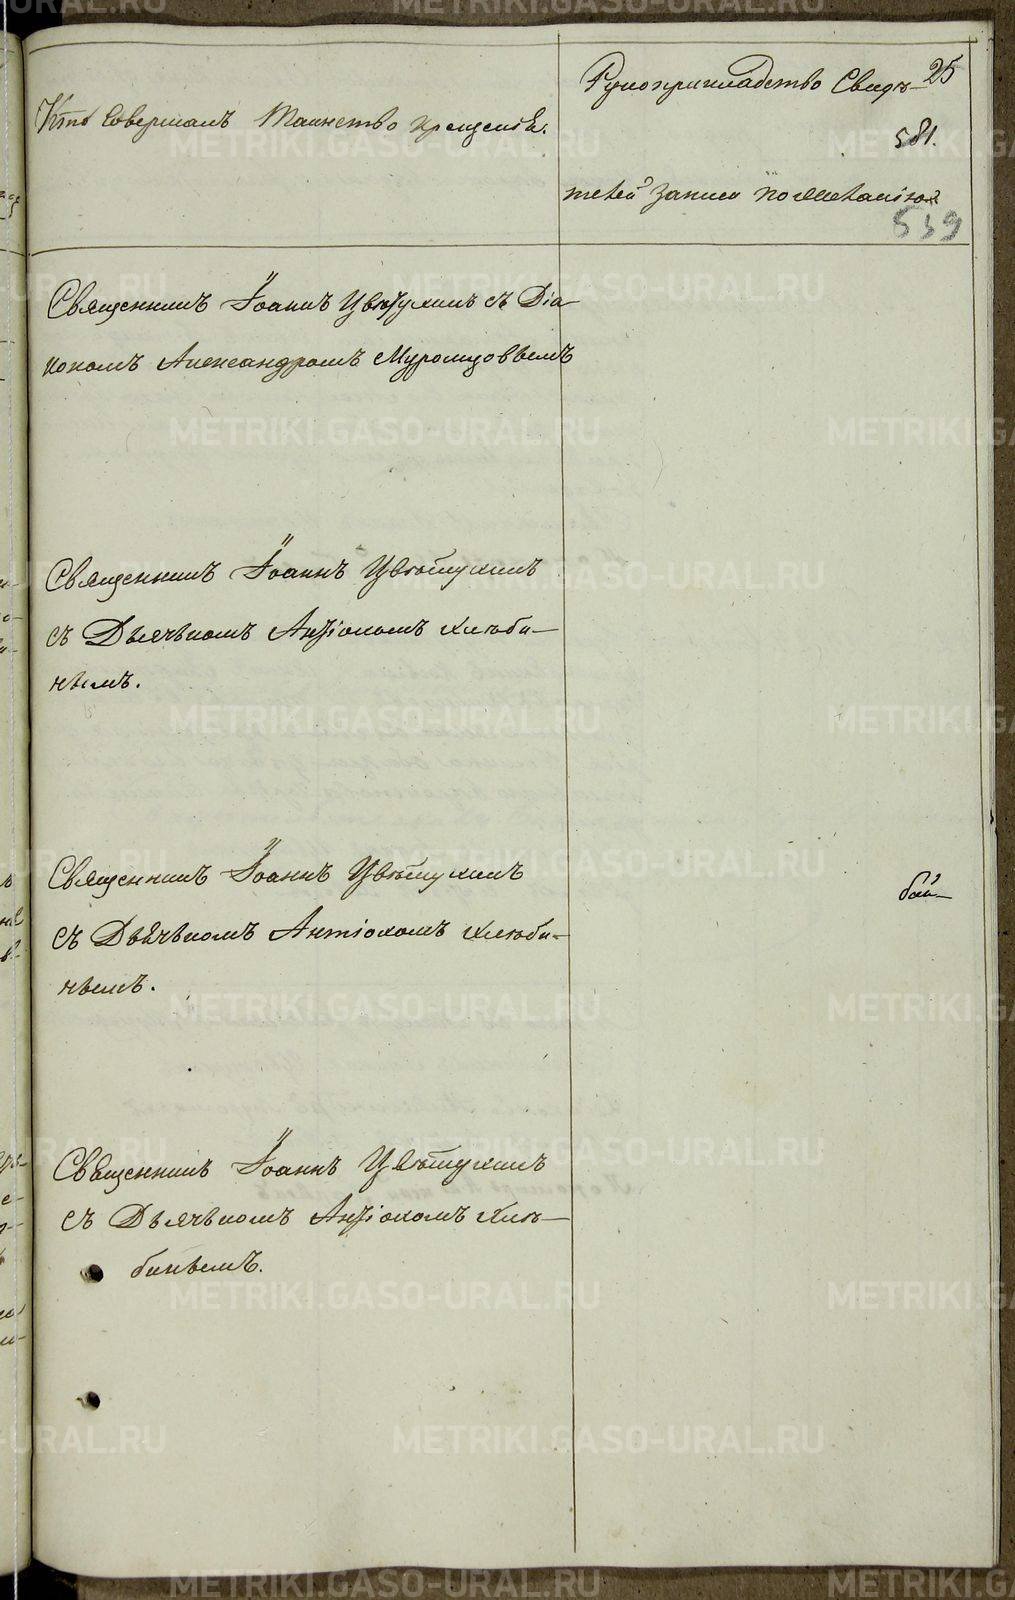 Кто совершалъ Таинство крещенія.
Рукоприкладство Свидѣ-
25
581.
телей записи по желанію
539
Священникъ Іоаннъ Цвѣтухинъ съ Діа-
кономъ Александромъ Муромцоввымъ
Священникъ Іоаннъ Цвѣтухинъ
съ Дьячькомъ Антіохомъ Хлѣби-
нымъ.
Священникъ Іоаннъ Цвѣтухинъ
съ Дьячькомъ Антіохомъ Хлѣби-
нымъ.
Священникъ Іоаннъ Цвѣтухинъ
съ Дьячькомъ Антіохомъ Хлѣ-
бинымъ.
METRIKI.GASO-URAL.RU